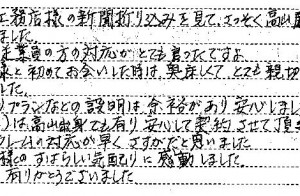 工務店様の新聞折り込みを見て、さっそく高山
ました。
従業員の方の対応がとても良ったですよ
様と初めてお会いした時は、奥深くて、とても親切
した。
プランなどの説明は余裕があり安心しまし
は高山出身でも有り安心して契約させて頂き
クレームの対応が早くさすがだと思いました
様のすばらしい気配りに感動しました。
有りがとうございました